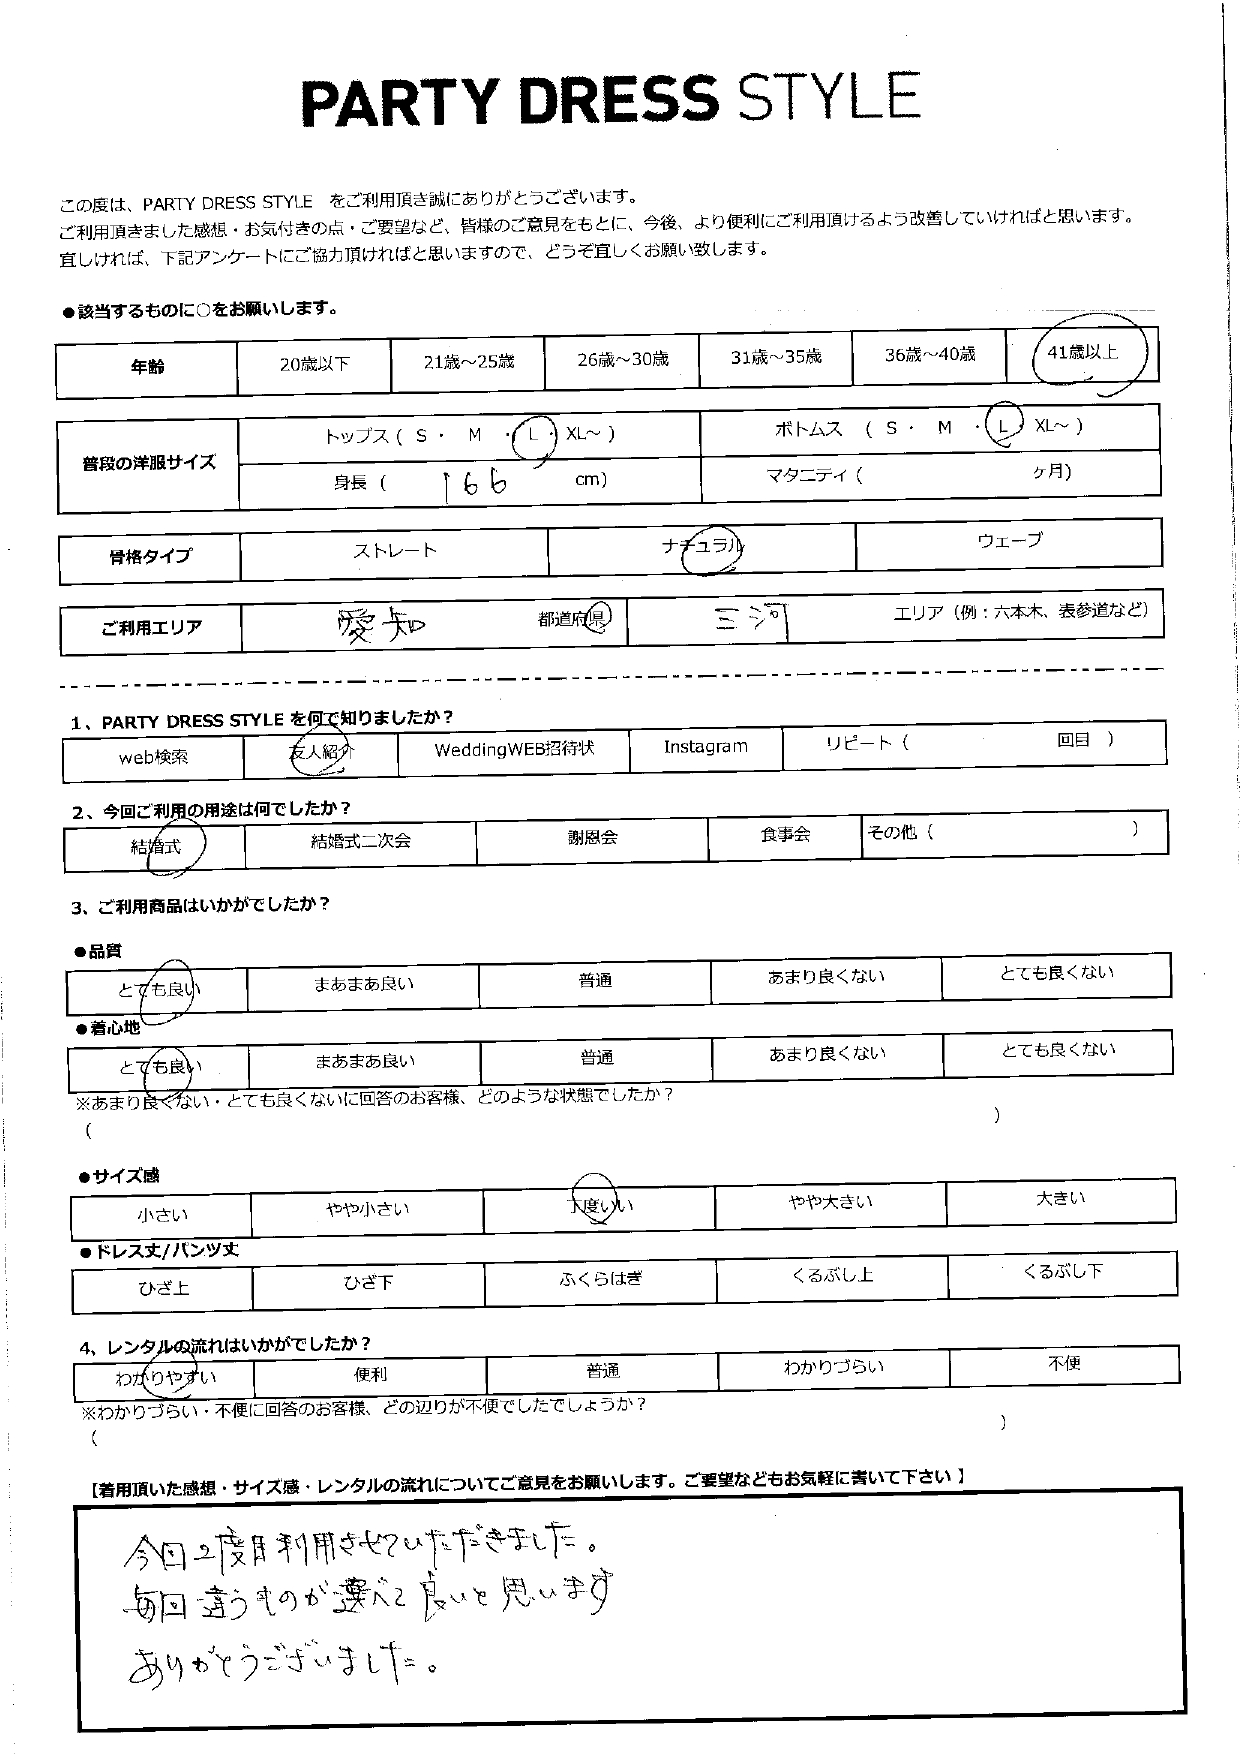 PARTY DRESS STYLE
この度は、PARTY DRESS STYLE　をご利用頂き誠にありがとうございます。
ご利用頂きました感想・お気付きの点・ご要望など、皆様のご意見をもとに、今後、より便利にご利用頂けるよう改善していければと思います。
宜しければ、下記アンケートにご協力頂ければと思いますので、どうぞ宜しくお願い致します。
●該当するものに○をお願いします。
年齢 20歳以下 21歳～25歳 26歳～30歳 31歳～35歳 36歳～40歳 41歳以上
普段の洋服サイズ
トップス ( S ・ M ・ L ・ XL～ ) ボトムス ( S ・ M ・ L ・ XL～ )
身長 ( 166 cm) マタニティ ( ヶ月)
骨格タイプ ストレート ナチュラル ウェーブ
ご利用エリア 愛知 都道府県 三河 エリア（例：六本木、表参道など）
1、PARTY DRESS STYLE を何で知りましたか？
web検索 友人紹介 WeddingWEB招待状 Instagram リピート ( 回目 )
2、今回ご利用の用途は何でしたか？
結婚式 結婚式二次会 謝恩会 食事会 その他 ( )
3、ご利用商品はいかがでしたか？
●品質
とても良い まあまあ良い 普通 あまり良くない とても良くない
●着心地
とても良い まあまあ良い 普通 あまり良くない とても良くない
※あまり良くない・とても良くないに回答のお客様、どのような状態でしたか？
( )
●サイズ感
小さい やや小さい 丁度いい やや大きい 大きい
●ドレス丈/パンツ丈
ひざ上 ひざ下 ふくらはぎ くるぶし上 くるぶし下
4、レンタルの流れはいかがでしたか？
わかりやすい 便利 普通 わかりづらい 不便
※わかりづらい・不便に回答のお客様、どの辺りが不便でしたでしょうか？
( )
【着用頂いた感想・サイズ感・レンタルの流れについてご意見をお願いします。ご要望などもお気軽に書いて下さい 】
今回2度目利用させていただきました。
毎回違うものが選べて良いと思います
ありがとうございました。